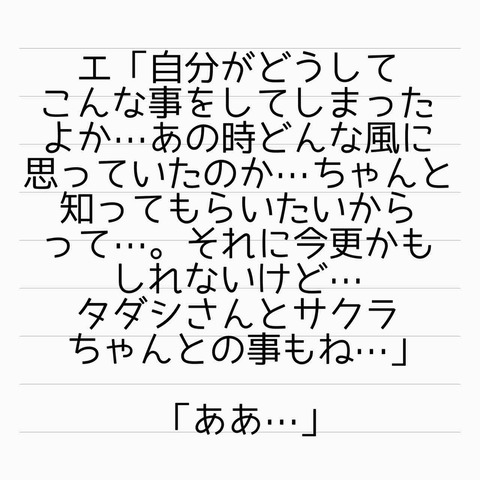 エ「自分がどうして
こんな事をしてしまった
よか…あの時どんな風に
思っていたのか…ちゃんと
知ってもらいたいから
って…。それに今更かも
しれないけど…
タダシさんとサクラ
ちゃんとの事もね…」
「ああ…」